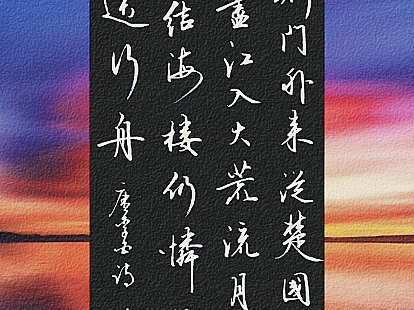 荆门外来從楚國
盡江入大荒流月
结海楼仍憐
送行舟 唐李白诗